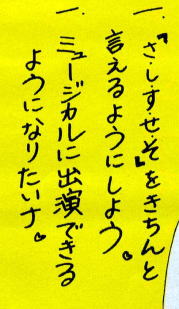 一.『さ・し・す・せ・そ』をきちんと
言えるようにしよう。
一.ミュージカルに出演できる
ようになりたいナ。